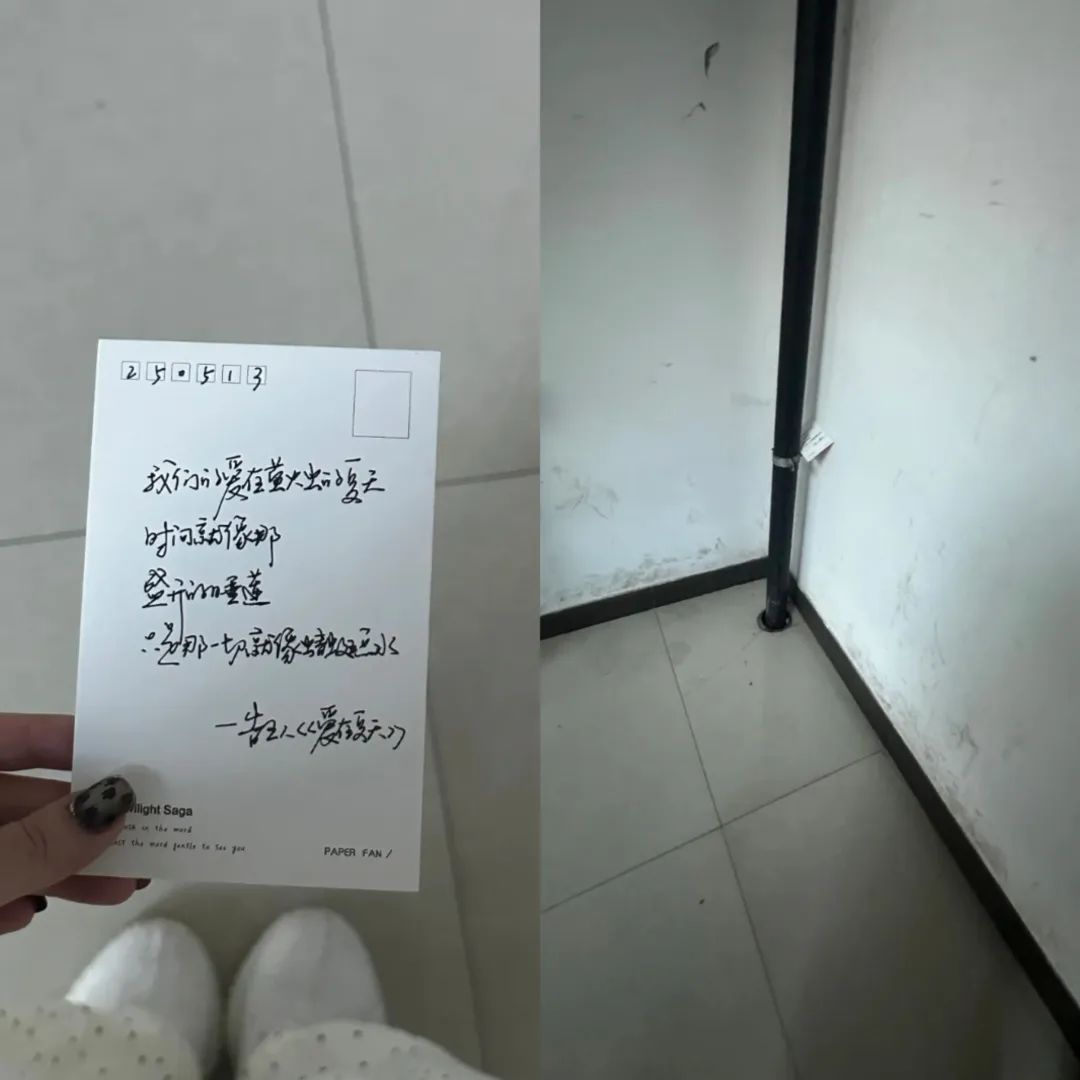 25•513
我们的爱在萤火虫的夏天
时间就像那
盛开的睡莲
只是那一切就像蜻蜓点水
—告五人《爱在夏天》
ilight Saga
in the word
the word gentle to see you
PAPER FAN /